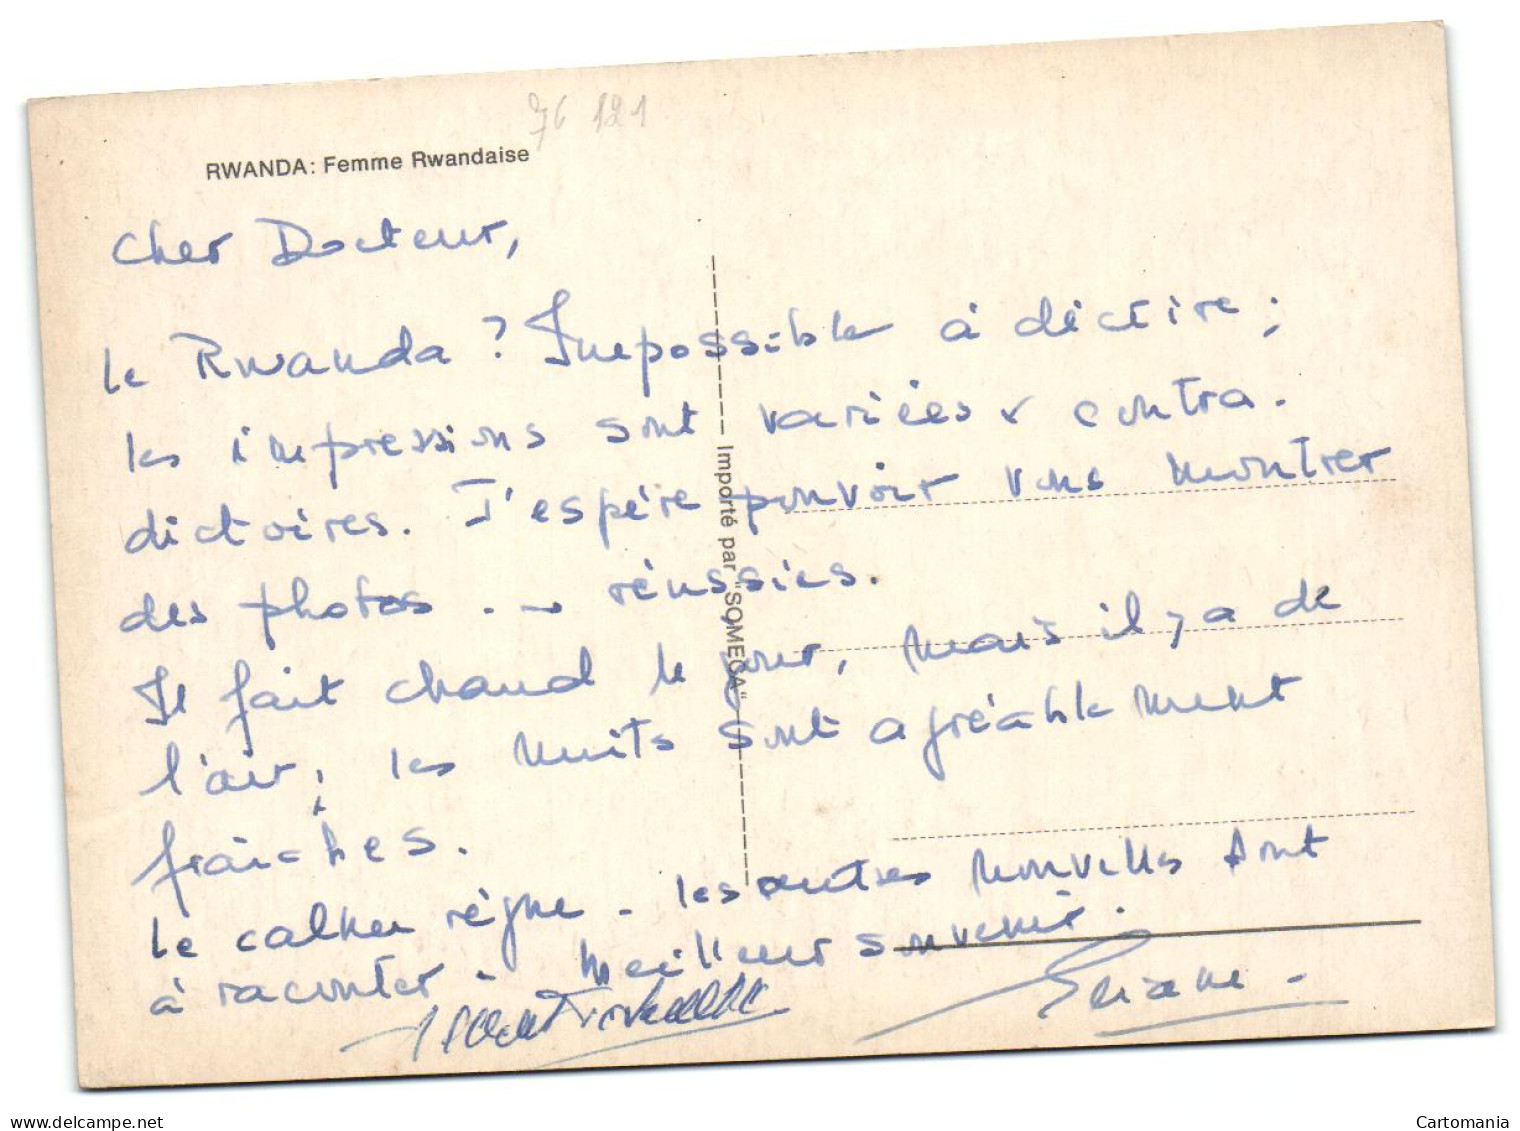 76 121
RWANDA: Femme Rwandaise
Cher Docteur,
le Rwanda ? Impossible à décrire ;
les impressions sont variées & contra-
dictoires. J'espère pouvoir vous montrer
des photos ... réussies.
Il fait chaud le jour, mais il y a de
l'air ; les nuits sont agréablement
fraîches.
Le calme règne - les autres nouvelles sont
à raconter. Meilleur souvenir.
Importé par "SOMECA"
delcampe.net
Cartomania